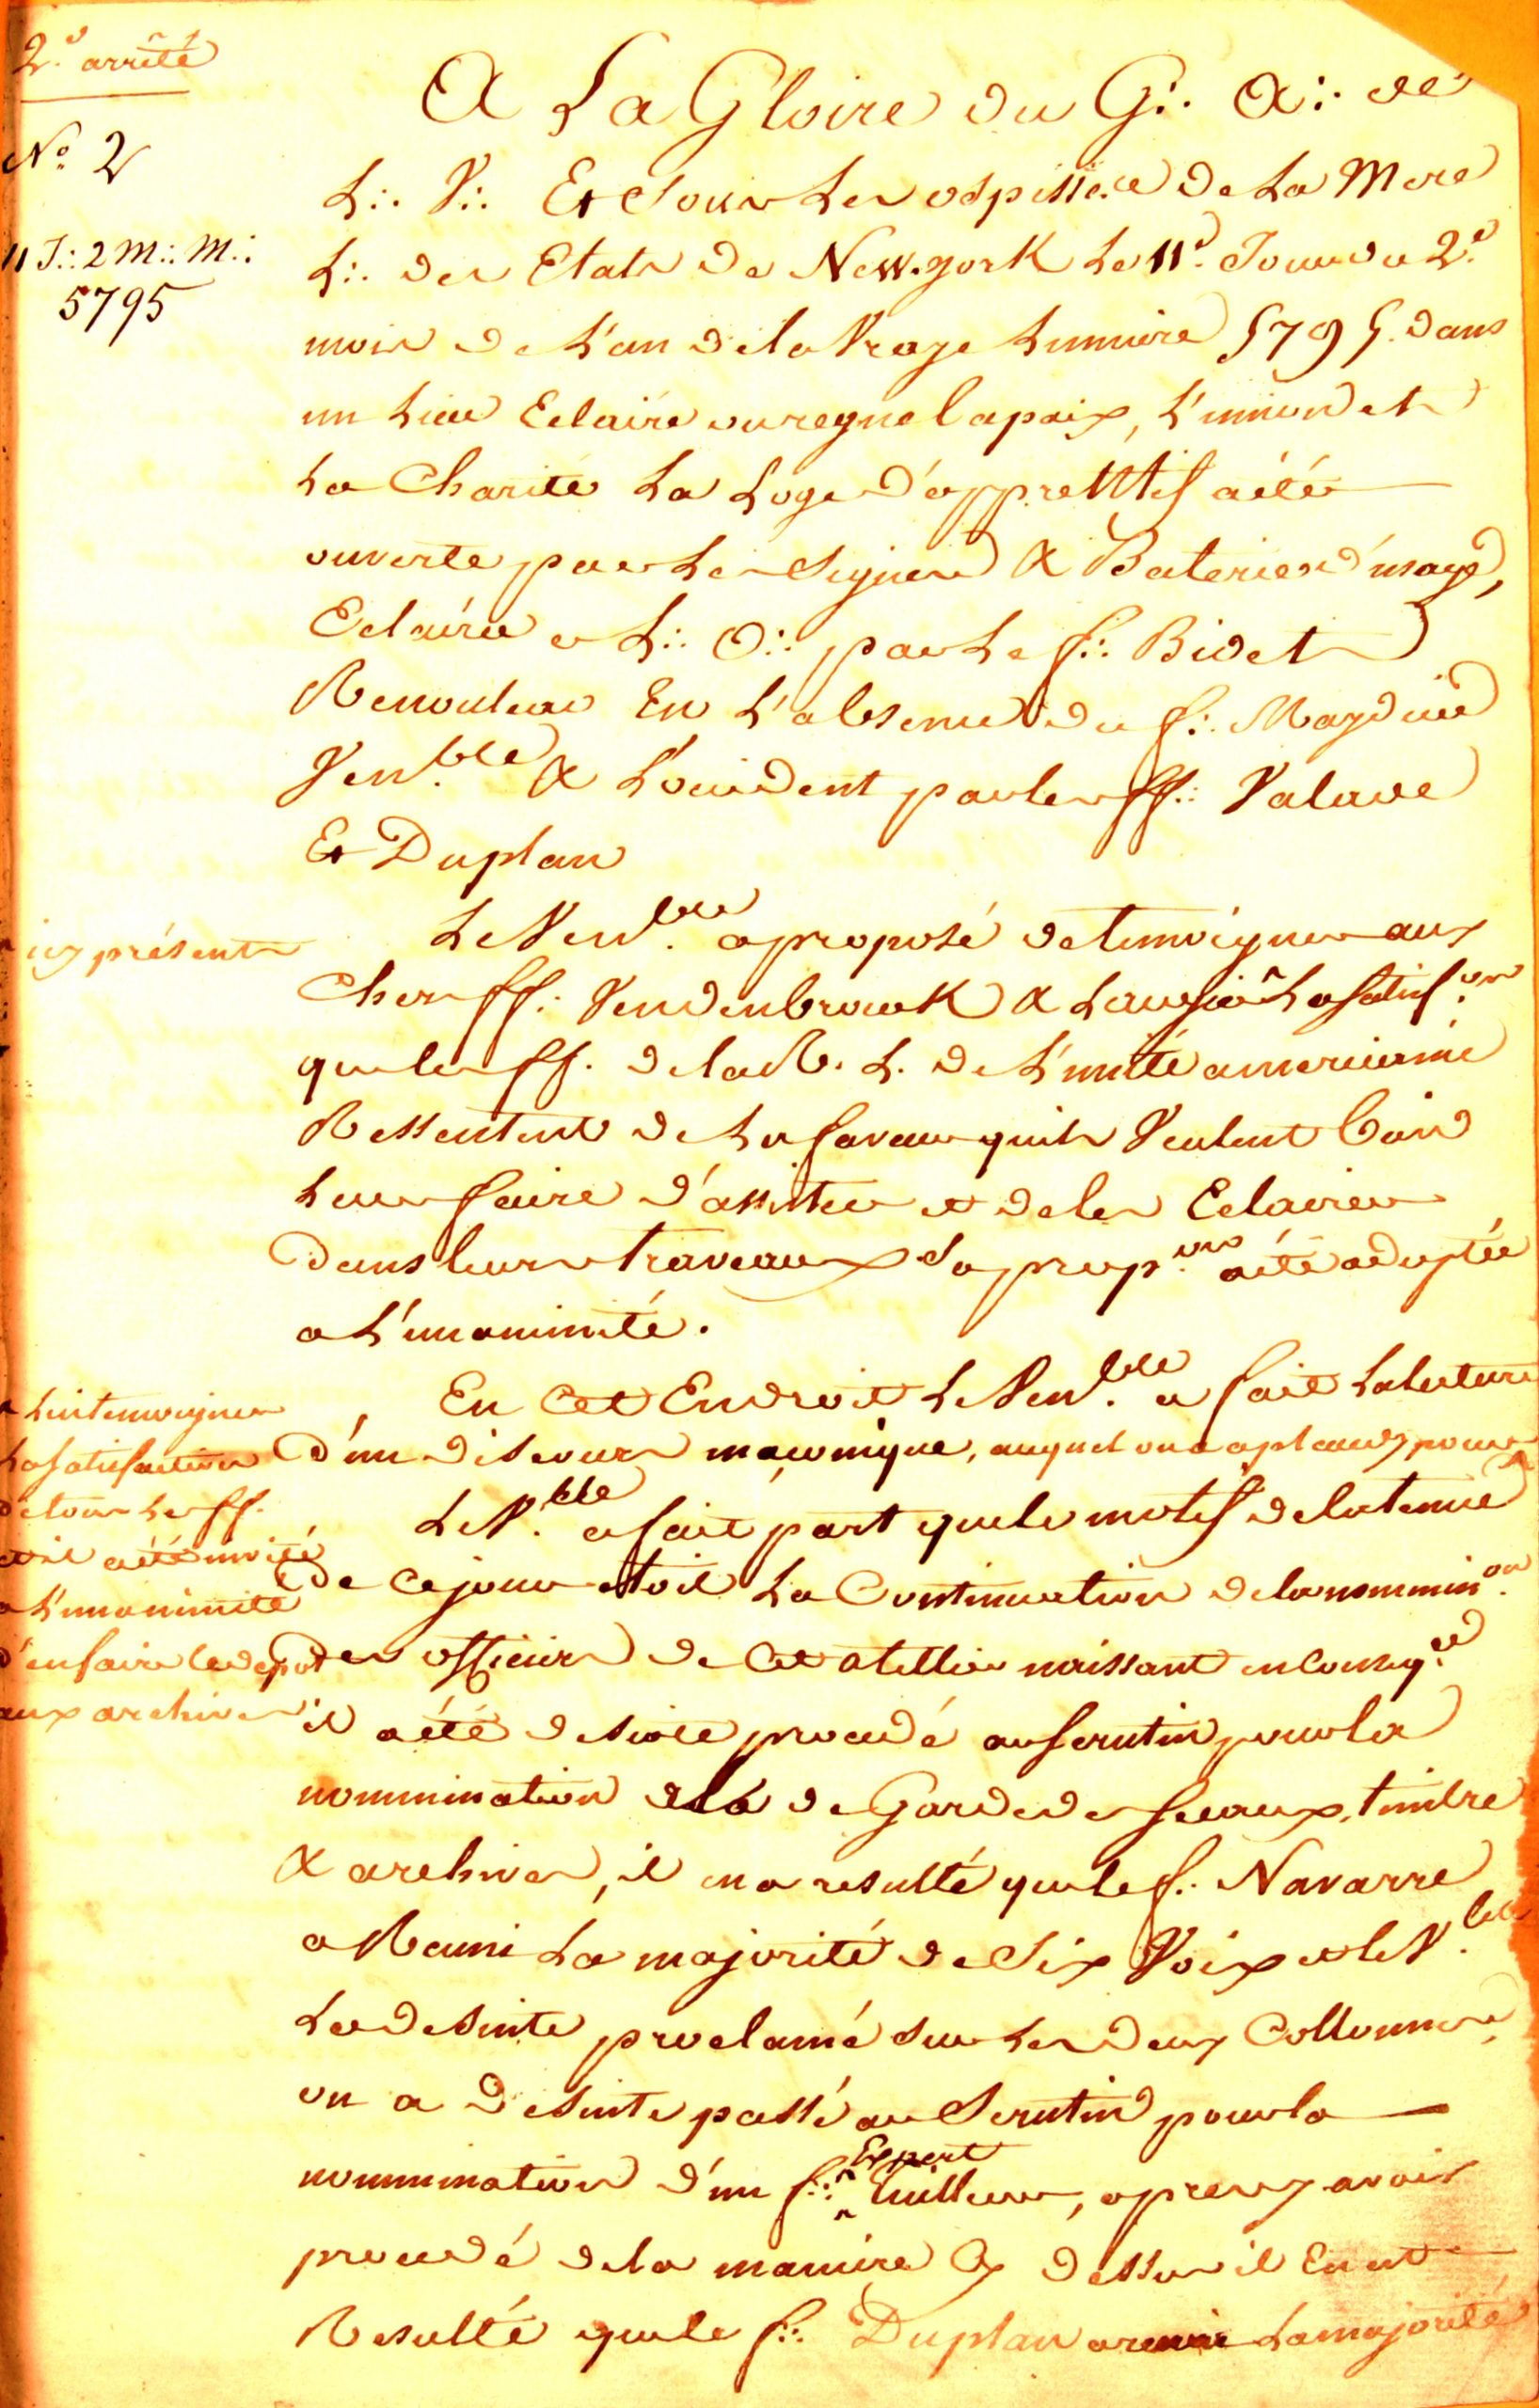 2.e arrêté
N.o 2
11 J∴ 2 M∴ M∴
5795
A La Gloire du G∴ A∴ de
L∴ V∴ Et Sous Les ospissice de La Mere
L∴ des Etats de New-york Le 11.e Jour du 2.e
mois de L'an de la Vraye Lumiere 5795. dans
un Lieu Eclairé ou regne la paix, L'union et
La Charité La Loge d'apprenttif a été
ouverte par Les Signes & Bateries d'usage,
Eclairée a L∴ O∴ par Le f∴ Bidet
Renouleau En L'absence du f∴
Ven.ble & L'occident par les ff∴ Valade
Et Duplan
Le Ven.ble a proposé de temoigner aux
icy présents
Chers ff∴ Vendenbrouk & La satisf.on
que les ff. de la R. L. de L'unité americaine
Ressentent de La faveur quils Veulent bien
Leur faire d'assister et de les Eclairer
Dans leurs travaux Sa prop.on a été adoptée
a L'unanimité.
En Cet Endroit Le Ven.ble a fait La lecture
d'un discours maçonique, auquel on a aplaudy pour
Lui temoigner
La satisfaction
de tous Les ff.
et il a été invité
a L'unanimité
d'en faire le depot
aux archives
Le V.ble a fait part que le motif de la tenue
de Ce jour etoit La Continuation de la nommin.on
des officiers de Cet atellier naissant en Conseq.ce
il a été de suite procedé au Scrutin pour la
nommination de Garde des Sceaux, timbre
& archives, il en a resulté que le f∴ Navarre
a Reuni La majorité de Six Voix et le V.ble
La de Suite proclamé Sur Les deux Collonnes,
on a de Suite passé au Scrutin pour la
nommination d'un f∴ Expert Tuilleur, apres y avoir
procedé de la maniere Cy dessus il En est
Resulté que le f∴ Duplan a reuni La majorité